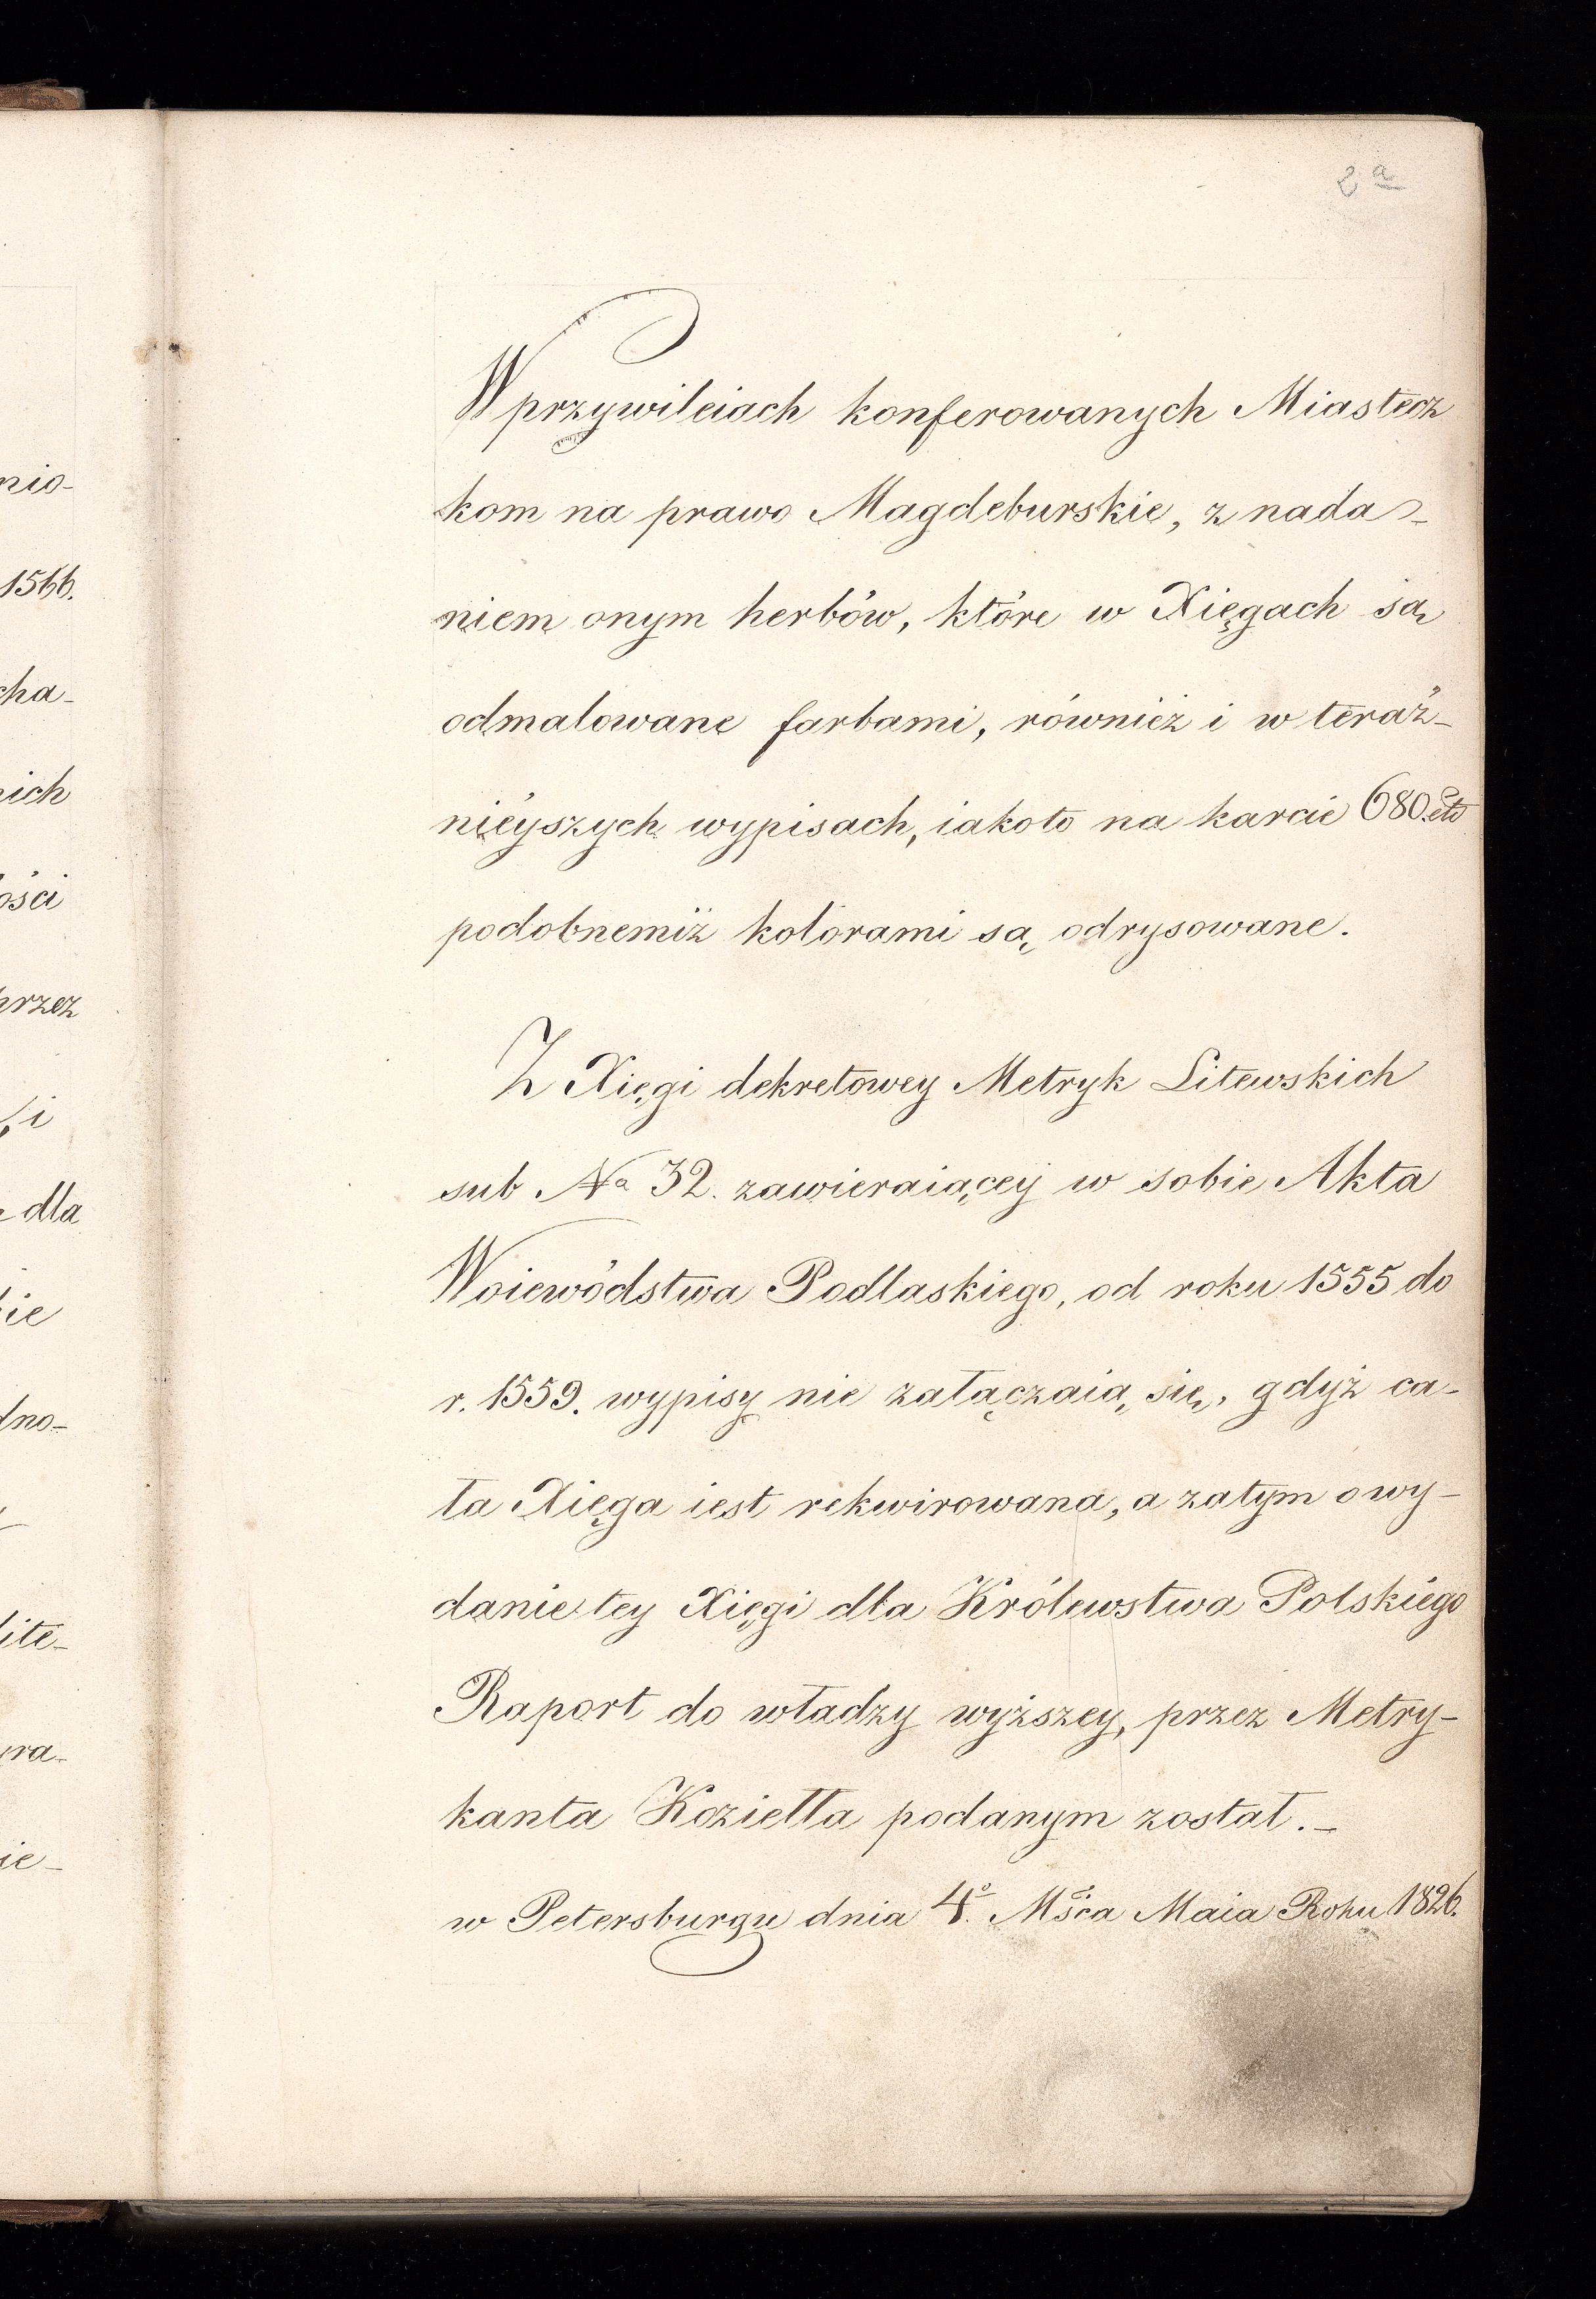 2 a
W przywileiach konferowanych Miastecz
kom na prawo Magdeburskie, z nada-
niem onym herbów, które w Xięgach są
odmalowane farbami, również i w teraź-
nieyszych wypisach, iakoto na karcie 680. etc
podobnemiż kolorami są odrysowane.
Z Xięgi dekretowey Metryk Litewskich
sub No 32. zawieraiącey w sobie Akta
Woiewództwa Podlaskiego, od roku 1555 do
r. 1559. wypisy nie załączaią się, gdyż ca-
ła Xięga iest rekwirowana, a zatym o wy-
danie tey Xięgi dla Królewstwa Polskiego
Raport do władzy wyższey, przez Metry-
kanta Koziełła podanym został.-
w Petersburgu dnia 4o. Mśca Maia Roku 1826.
nio-
1566.
cha-
nich
ości
przez
i
dla
ie
dno-
lite-
ra-
ie-